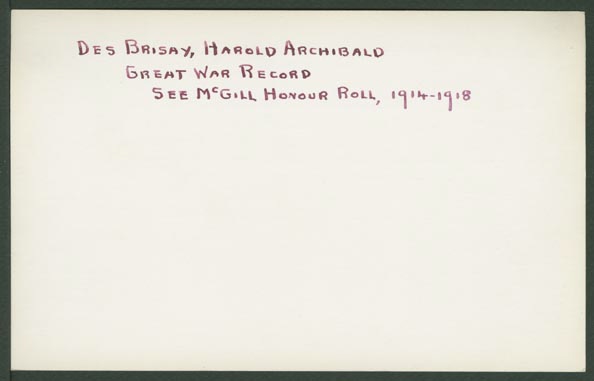 Des Brisay, Harold Archibald
Great War Record
See McGill Honour Roll, 1914-1918